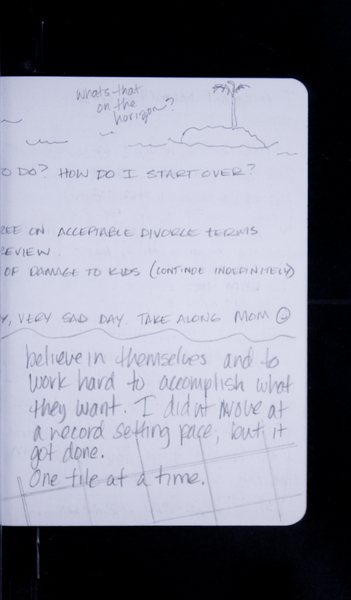 Whats that
on the
horizon?
O DO? HOW DO I START OVER?
REE ON ACCEPTABLE DIVORCE TERMS
REVIEW.
OF DAMAGE TO KIDS (CONTINUE INDEFINITELY)
Y, VERY SAD DAY. TAKE ALONG MOM ☹
believe in themselves and to
work hard to accomplish what
they want. I didn't move at
a record setting pace, but it
got done.
One tile at a time.